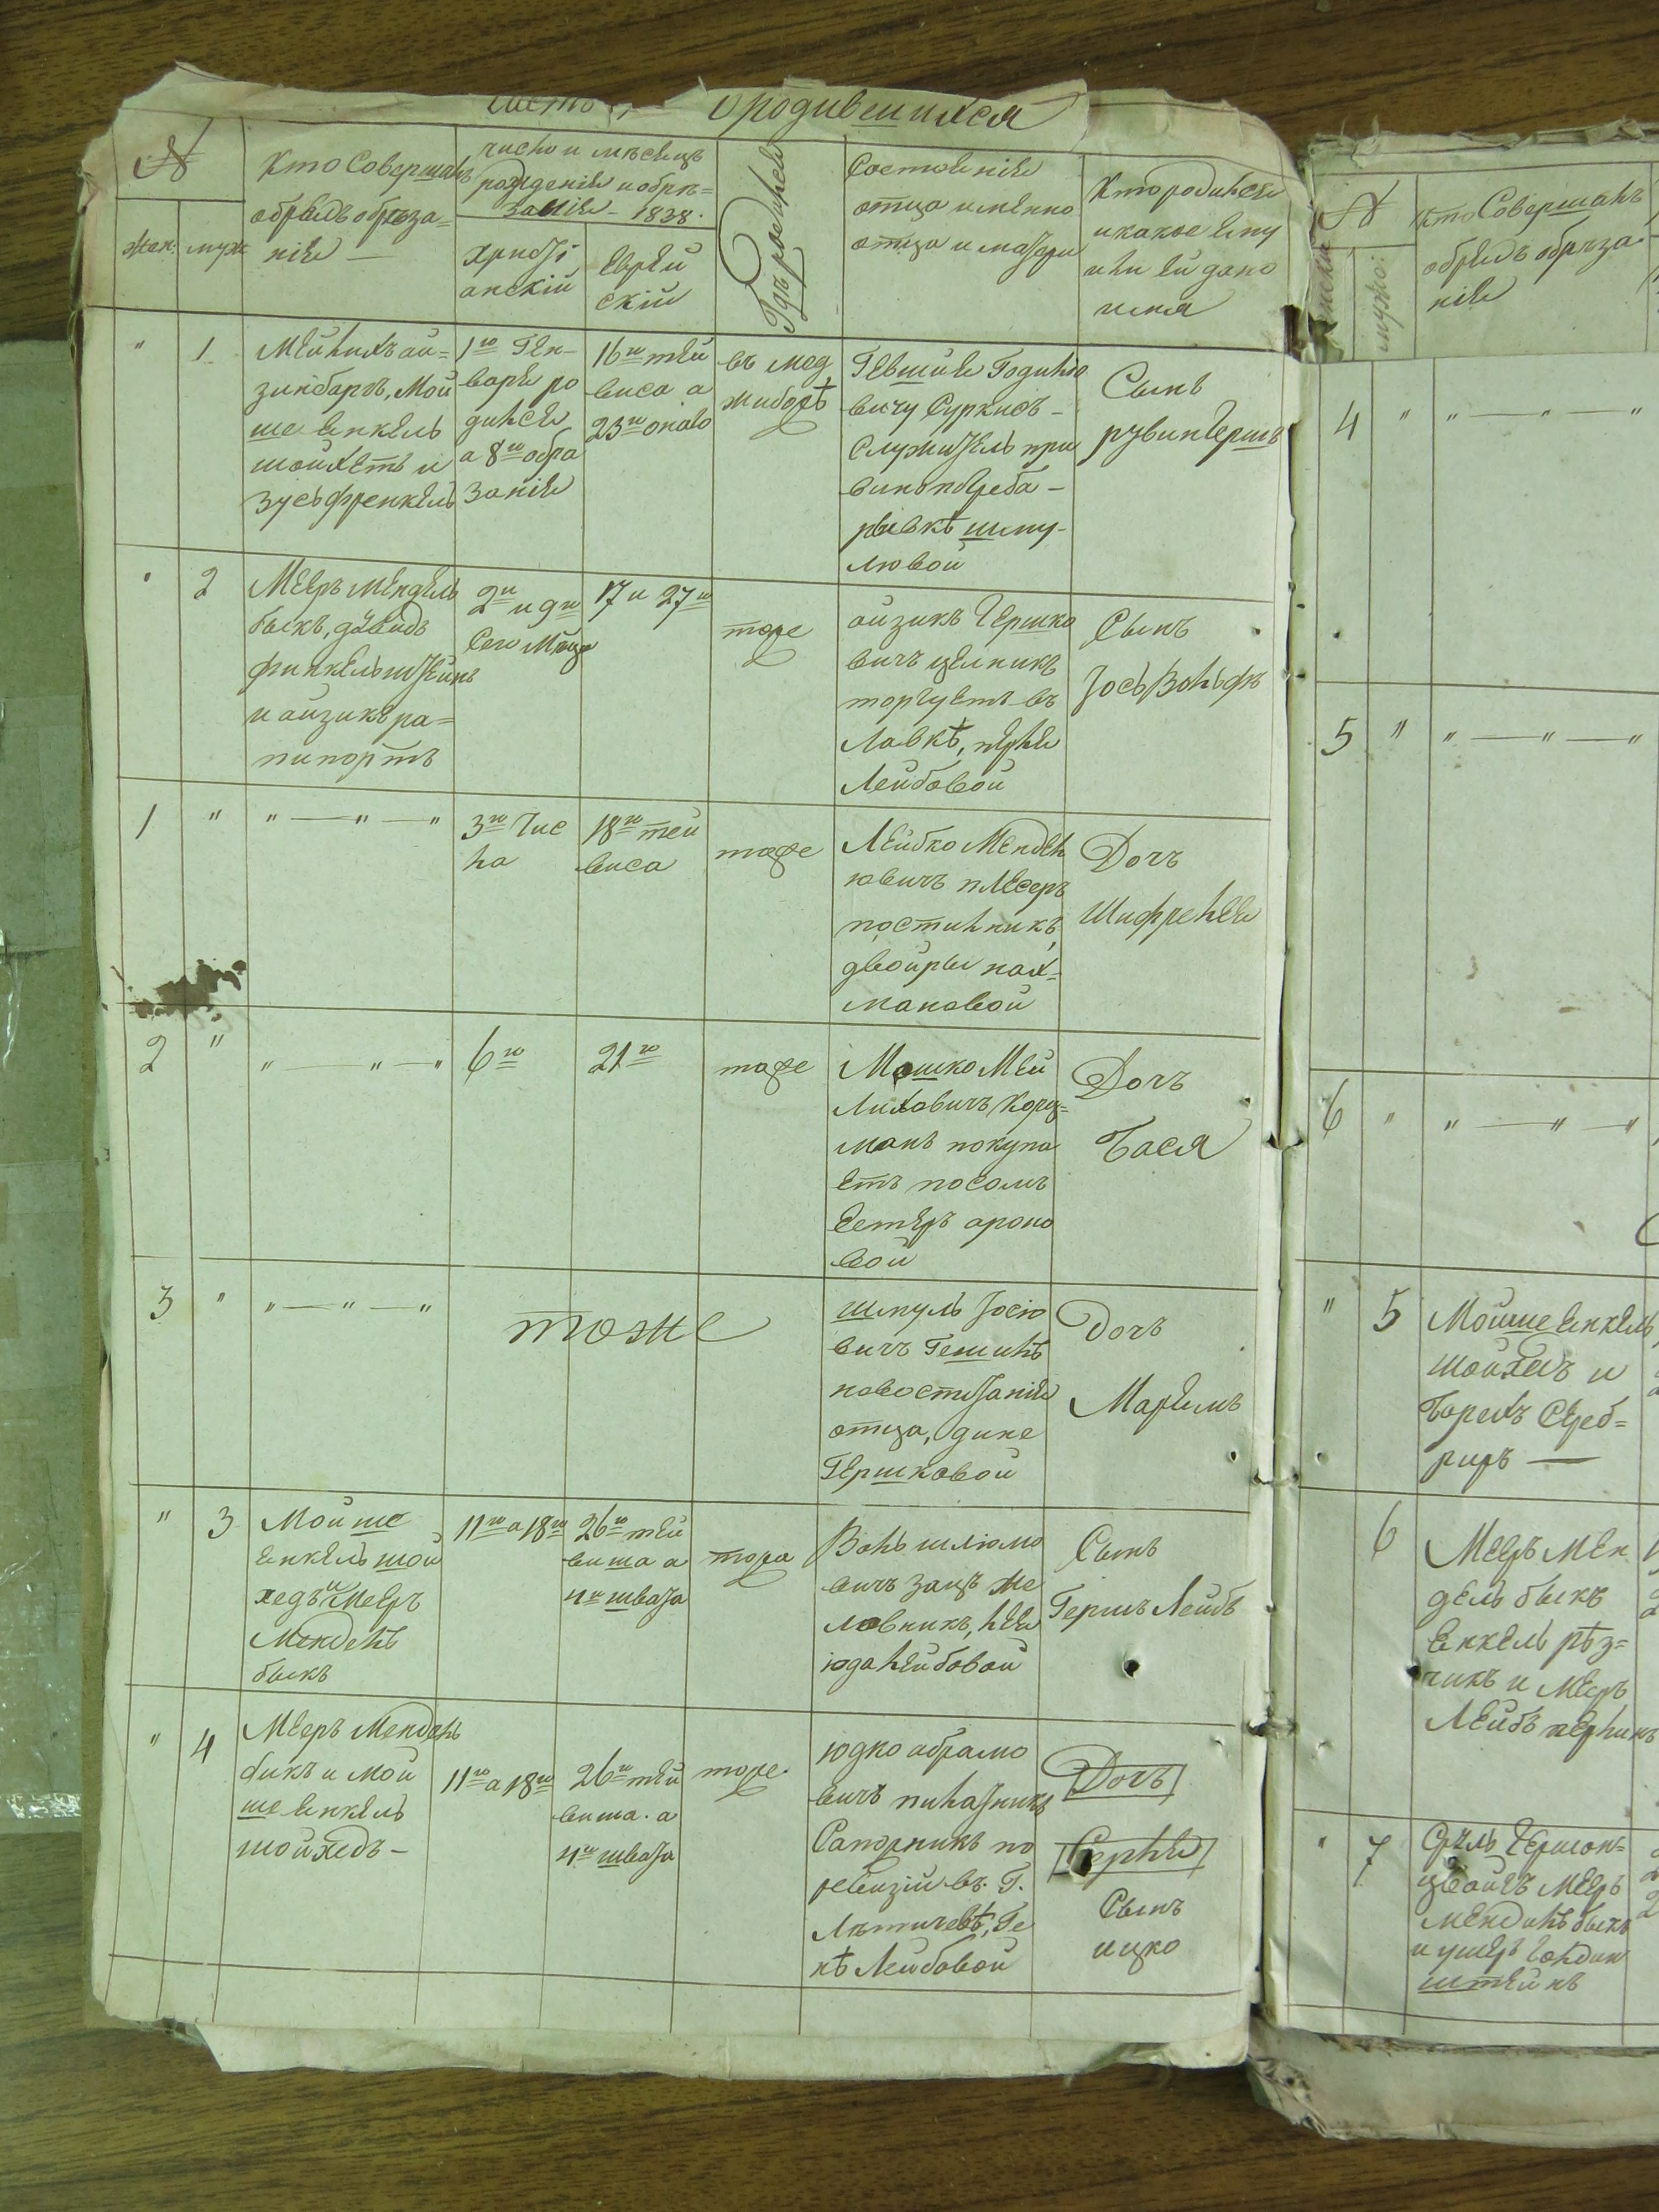 Часть I, о родившихся
№
жен.
муж
Кто Совершалъ
обрядъ обреза=
нія —
число и мѣсяцъ
рожденія и обрѣ=
занія – 1838.
христі
анскій
Еврей
скій
Гдѣ родился
Состояніе
отца имянно
отца и матери
Кто родился
и какое ему
или ей дано
имя
" 1
Мейлихъ ай=
зинбаргъ, Мой
ше Янкель
шойхетъ и
Зусь френкель
1го Ген-
варя ро
дился
а 8го обра
занія
16го тей
виса а
23го онаго
въ мед
жибожѣ
Гевшия Годилю
вичу Суркисъ –
Служитель при
винопогреба –
рывкѣ шму-
лювой
Сынъ
рувингершъ
" 2
Мееръ мендель
быкъ, давидъ
финкельштейнъ
и айзикъ ра=
пипортъ
2го и 9го
Сего Мѣца
17 и 27го
тоже
айзикъ Гершко
вичъ целникъ
торгуетъ въ
Лавкѣ, перля
Лейбовой
Сынъ
Іось Вольфъ
1 " " — " — "
3го Чис
ла
18го тей
виса
тоже
Лейбко Мендел
ювичъ плесеръ
постилникъ,
двойры нах-
мановой
Дочъ
Шифрелея
2 " " — " — "
6го
21го
тоже
Мошко Мей
Лиховичъ Корц=
манъ покупа
етъ посомъ
Естеръ ароно
вой
Дочъ
Бася
3 " " — " — "
тоже
шмуль Іосіо
вичъ Гешилъ
навостытанія
отца, дине
Гершковой
Дочъ
Марямъ
" 3
Мойше
Янкель шой
хедъ и Мееръ
Мендель
быкъ
11го а 18го
26го тей
виша а
4го швата
тоже
Воль шлюмо
вичъ зацъ ме
ловникъ, лея
юда лейбовой
Сынъ
Гершъ Лейбъ
" 4
Мееръ Мендель
быкъ и Мой
ше Янкель
шойхедъ –
11го а 18го
26го тей
виша. а
4го швата
тоже
юдко абрамо
вичъ пилатникъ
Сапорникъ по
ревизіи въ. Г.
Лѣтичевѣ, Ге
нѣ Лейбовой
Дочъ
Серля
Сынъ
ицко
№
женски
мужс:
кто Совершалъ
обрядъ обрѣза
нія
4 " " — " — "
5 " " — " — "
6 " " — " — "
" 5
Мойше Янкель
шойхетъ и
Борехъ Среб=
риръ —
6
Мееръ Мен
дель быкъ
Янкель рѣз=
чикъ и Мееръ
Лейбъ перлинъ
" 7
Сруль Гершон=
цвойгъ Мееръ
Мендиль быкъ
и ушеръ Голдин
штейнъ